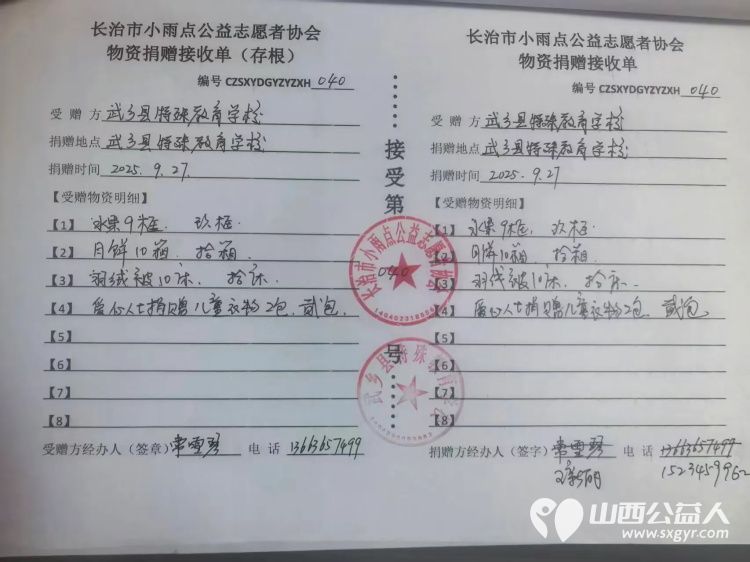 长治市小雨点公益志愿者协会
物资捐赠接收单（存根）
编号 CZSXYDGYZYZXH 040
受赠方 武乡县特殊教育学校
捐赠地点 武乡县特殊教育学校
捐赠时间 2025.9.27.
【受赠物资明细】
【1】 水果9框. 玖框
【2】 月饼10箱. 拾箱
【3】 羽绒被10床. 拾床.
【4】 爱心人士捐赠儿童衣物2包. 贰包.
【5】
【6】
【7】
【8】
受赠方经办人（签章） 常雪琴 电话 13663657499
接受第
040
号
长治市小雨点公益志愿者协会
武乡县特殊教育学校
长治市小雨点公益志愿者协会
物资捐赠接收单
编号 CZSXYDGYZYZXH 040
受赠方 武乡县特殊教育学校
捐赠地点 武乡县特殊教育学校
捐赠时间 2025.9.27
【受赠物资明细】
【1】 水果9框. 玖框.
【2】 月饼10箱. 拾箱
【3】 羽绒被10床. 拾床.
【4】 爱心人士捐赠儿童衣物2包. 贰包.
【5】
【6】
【7】
【8】
捐赠方经办人（签字） 常雪琴 电话 13663657499
15234459962
山西公益人
www.sxgyr.com